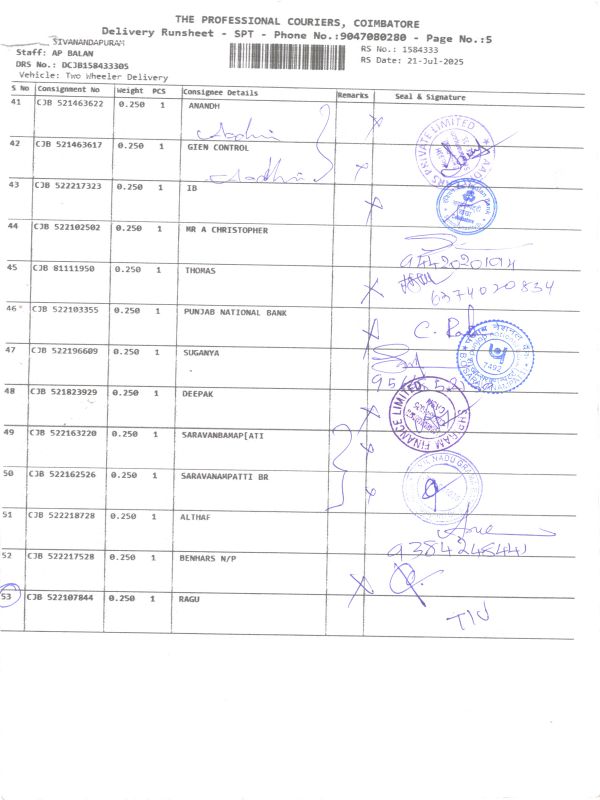 THE PROFESSIONAL COURIERS, COIMBATORE
Delivery Runsheet - SPT - Phone No.:9047080280 - Page No.:5
SIVANANDAPURAM
Staff: AP BALAN
RS No.: 1584333
DRS No.: DCJB1584333305
RS Date: 21-Jul-2025
Vehicle: Two Wheeler Delivery
S No Consignment No Weight PCS Consignee Details Remarks Seal & Signature
41 CJB 521463622 0.250 1 ANANDH
42 CJB 521463617 0.250 1 GIEN CONTROL
43 CJB 522217323 0.250 1 IB
44 CJB 522102502 0.250 1 MR A CHRISTOPHER
45 CJB 81111950 0.250 1 THOMAS
6374020834
46 CJB 522103355 0.250 1 PUNJAB NATIONAL BANK
47 CJB 522196609 0.250 1 SUGANYA
48 CJB 521823929 0.250 1 DEEPAK
FINANCE LIMITED
49 CJB 522163220 0.250 1 SARAVANBAMAP[ATI
50 CJB 522162526 0.250 1 SARAVANAMPATTI BR
51 CJB 522218728 0.250 1 ALTHAF
52 CJB 522217528 0.250 1 BENHARS N/P
53 CJB 522107844 0.250 1 RAGU